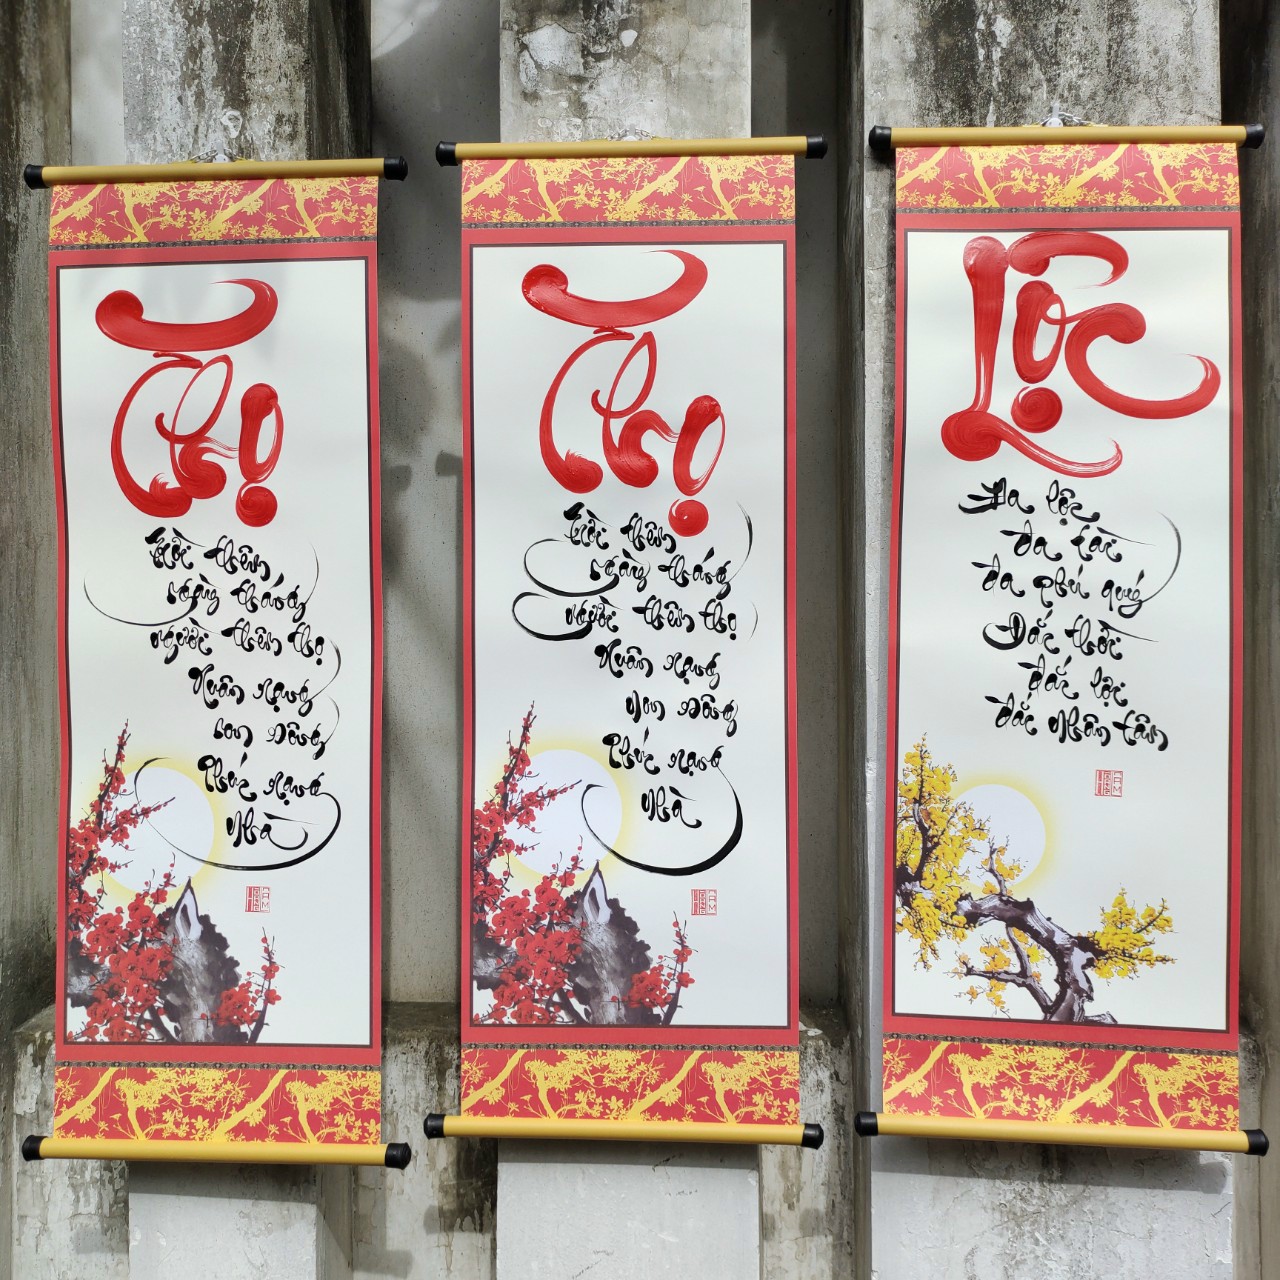 Thọ
Trời thêm
ngày tháng
người thêm thọ
Xuân rạng
non sông
Phúc rạng
Nhà
Thọ
Trời thêm
ngày tháng
người thêm thọ
Xuân rạng
non sông
Phúc rạng
Nhà
Lộc
Đa lộc
đa tài
đa phú quý
Đắc thời
đắc lộc
đắc nhân tâm